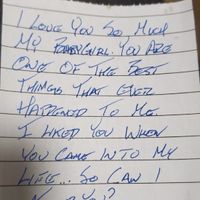 I LOVE YOU SO MUCH
MY BABYGIRL. YOU ARE
ONE OF THE BEST
THINGS THAT EVER
HAPPENED TO ME.
I LIKED YOU WHEN
YOU CAME INTO MY
LIFE... SO CAN I
YOU?